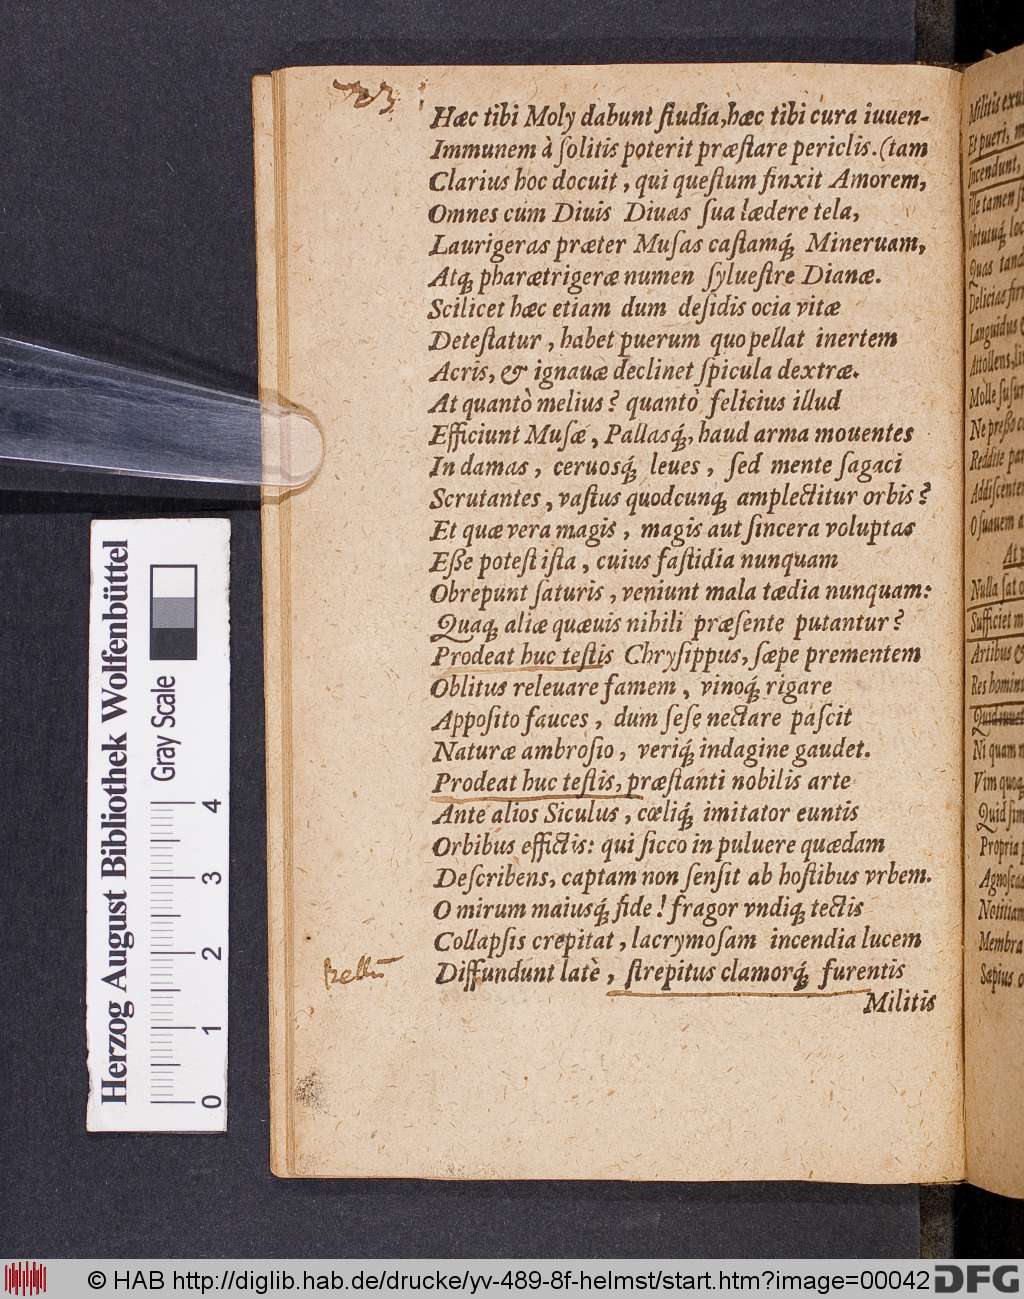 23
Hæc tibi Moly dabunt ſtudia, hæc tibi cura iuuen-
Immunem à ſolitis poterit præſtare periclis. (tam
Clarius hoc docuit, qui queſtum finxit Amorem,
Omnes cum Diuis Diuas ſua lædere tela,
Laurigeras præter Muſas caſtamq́; Mineruam,
Atq; pharætrigeræ numen ſylueſtre Dianæ.
Scilicet hæc etiam dum deſidis ocia vitæ
Deteſtatur, habet puerum quo pellat inertem
Acris, & ignauæ declinet ſpicula dextræ.
At quantò melius? quantò felicius illud
Efficiunt Muſæ, Pallasq́;, haud arma mouentes
In damas, ceruosq́; leues, ſed mente ſagaci
Scrutantes, vaſtus quodcunq; amplectitur orbis?
Et quæ vera magis, magis aut ſincera voluptas
Eße poteſt iſta, cuius faſtidia nunquam
Obrepunt ſaturis, veniunt mala tædia nunquam:
Quaq; aliæ quæuis nihili præſente putantur?
Prodeat huc teſtis Chryſippus, ſæpe prementem
Oblitus releuare famem, vinoq́; rigare
Appoſito fauces, dum ſeſe nectare paſcit
Naturæ ambroſio, veriq́; indagine gaudet.
Prodeat huc teſtis, præſtanti nobilis arte
Ante alios Siculus, cœliq́; imitator euntis
Orbibus effictis: qui ſicco in puluere quædam
Deſcribens, captam non ſenſit ab hoſtibus vrbem.
O mirum maiusq́; fide! fragor vndiq; tectis
Collapſis crepitat, lacrymoſam incendia lucem
Diffundunt latè, ſtrepitus clamorq́; furentis
Militis
Militis
Et pueri,
Incendunt,
Ille tamen
Obtutuq́;
Quas
Delicias
Languidus
Attollens,
Molle
Ne preßo
Reddite
O ſuauem
At
Nulla ſat
Sufficiet
Artibus
Res
Ni quam
Vim quoq;
Quid
Propria
Membra
Sæpius
Herzog August Bibliothek Wolfenbüttel
Gray Scale
0 1 2 3 4
© HAB http://diglib.hab.de/drucke/yv-489-8f-helmst/start.htm?image=00042
DFG